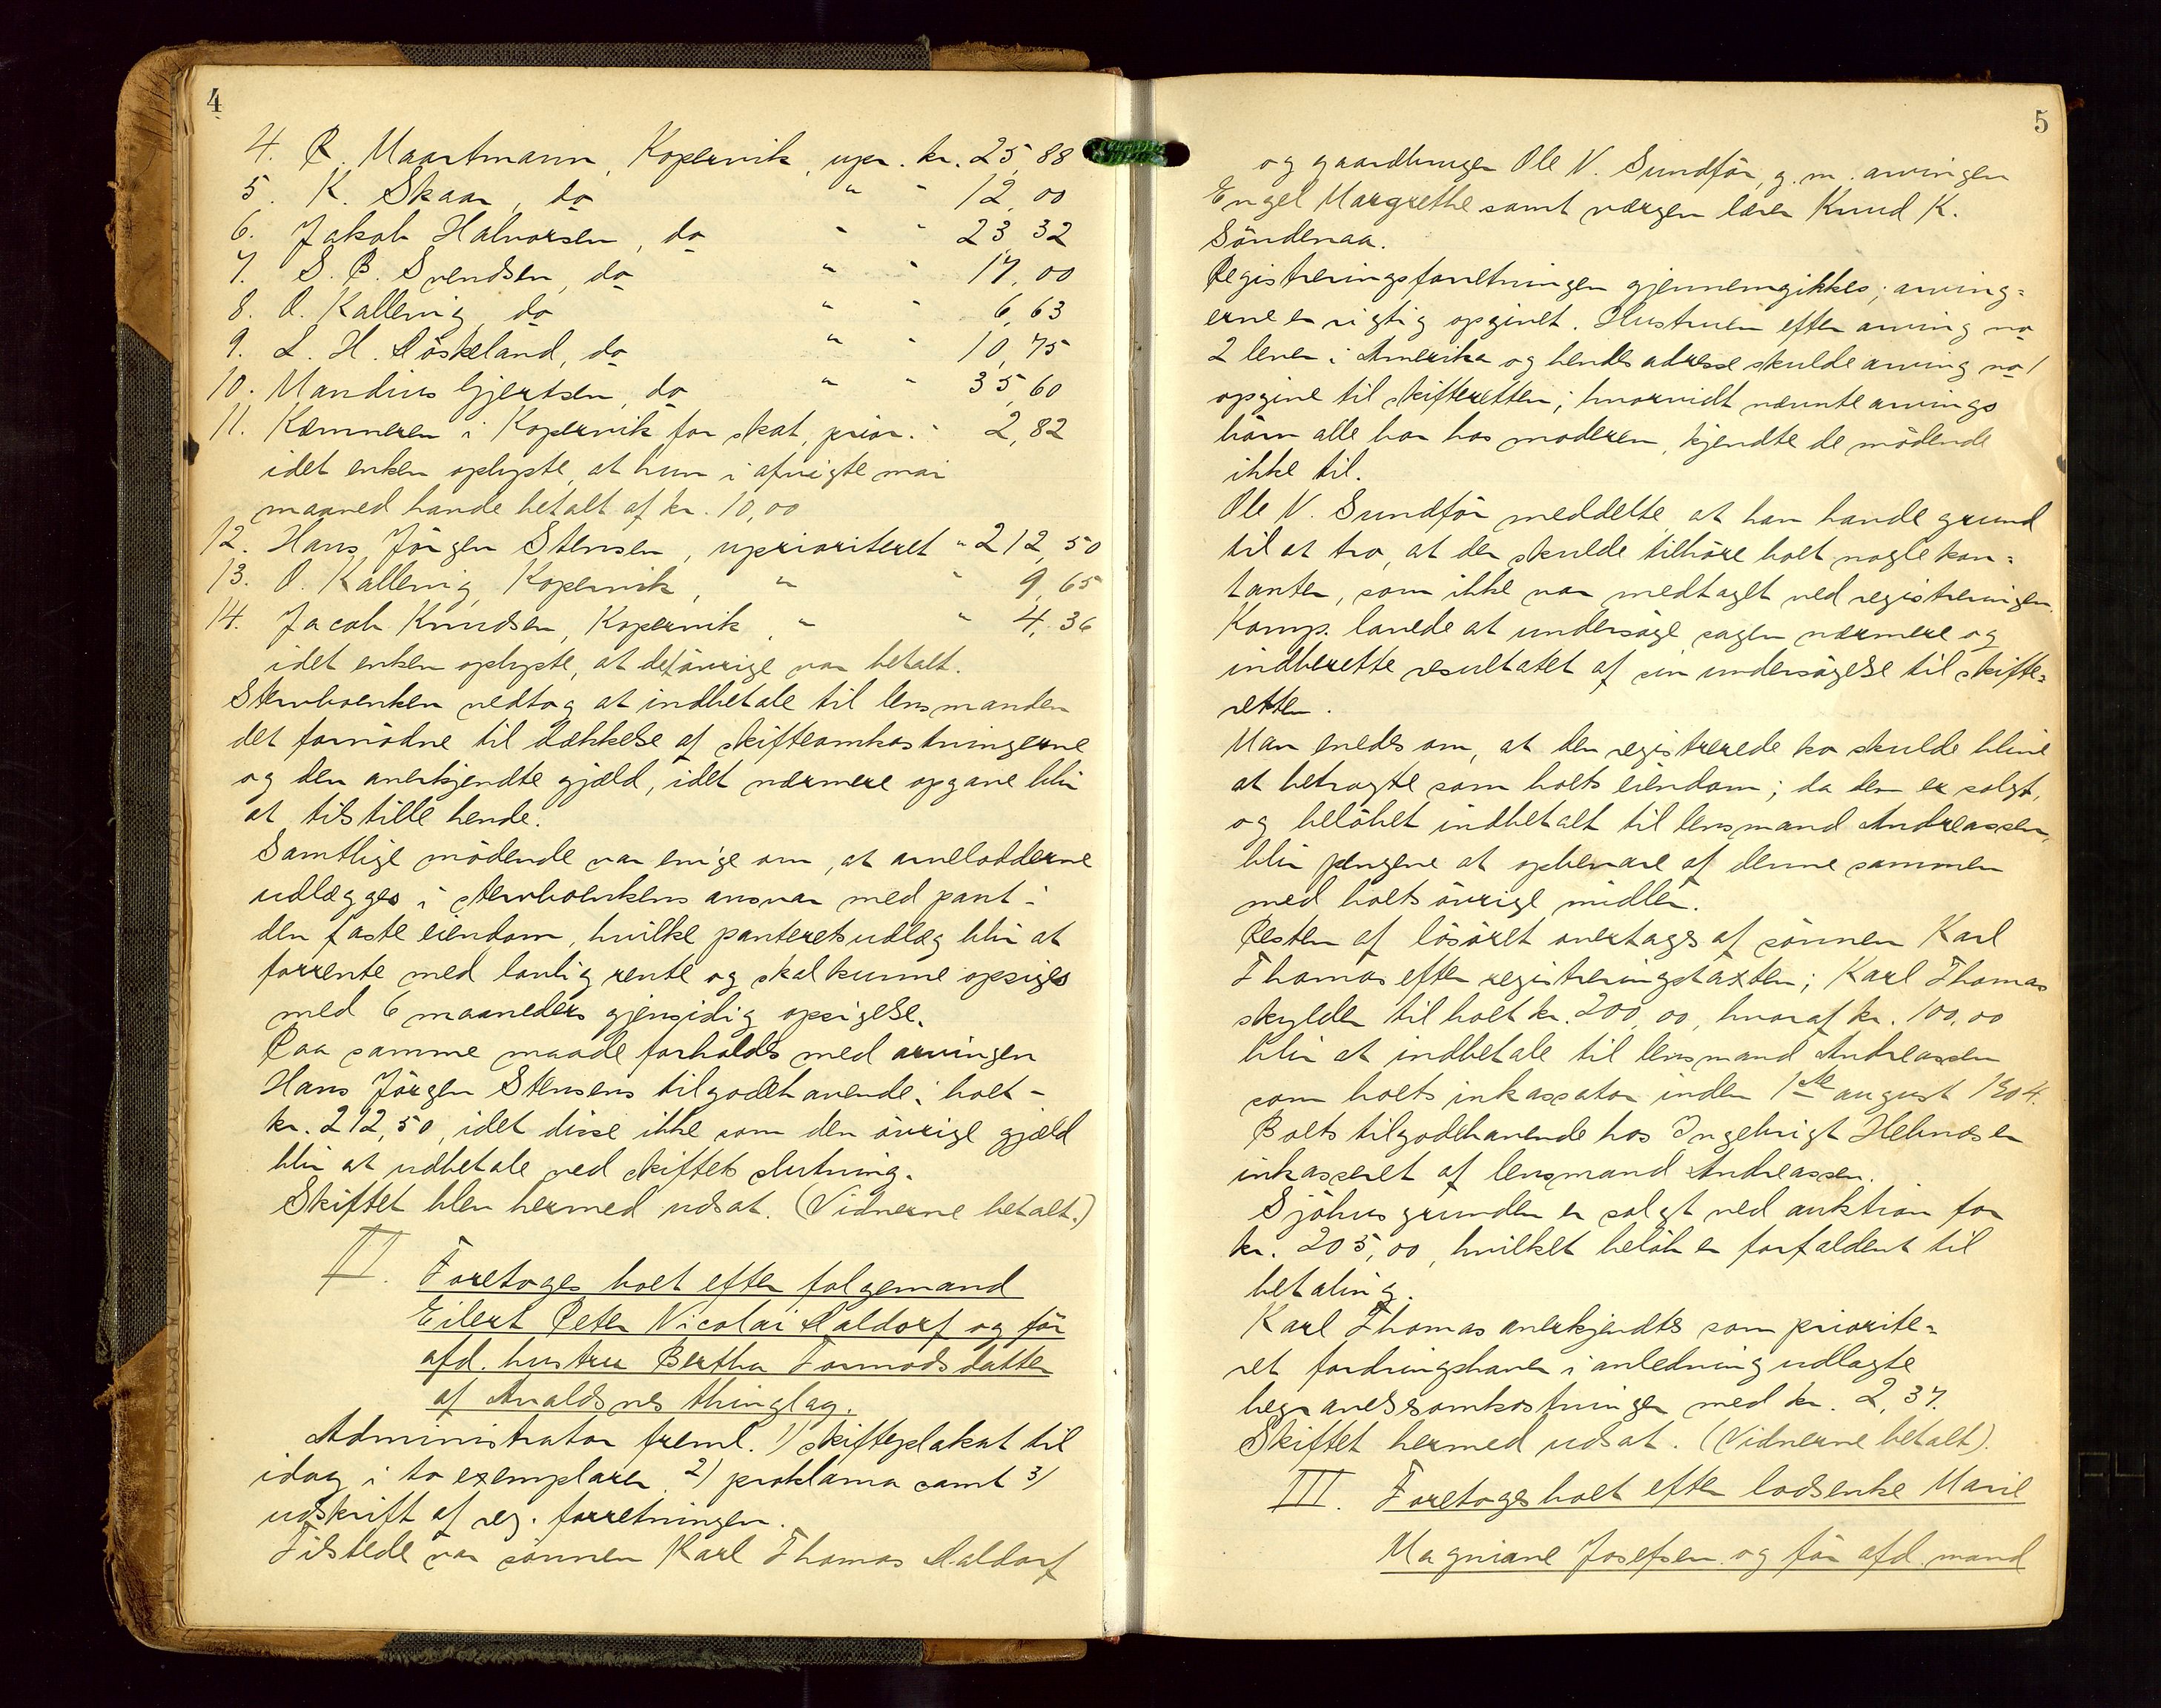 4
4. R. Maartmann, Kopervik, upr. kr. 25,88
5. K. Skaar, do " " 12,00
6. Jakob Halvorsen, do " " 23,32
7. S. B. Svendsen, do " " 17,00
8. O. Kallevig, do " " 6,63
9. L. H. Röskeland, do " " 10,75
10. Mandius Gjertsen, do " " 35,60
11. Kæmneren i Kopervik for skat, prior. " 2,82
idet enken oplyste, at hun i afvigte mai
maaned havde betalt af kr. 10,00
12. Hans Jörgen Stensen, uprioriteret " 212,50
13. O. Kallevig, Kopervik, " " 9,65
14. Jacob Knudsen, Kopervik, " " 4,36
idet enken oplyste, at det övrige var betalt.
Stervboenken vedtog at indbetale til lensmanden
det fornödne til dækkelse af skifteomkostningerne
og den anerkjendte gjæld, idet nærmere opgave blir
at tilstille hende.
Samtlige mödende var enige om, at arvelodderne
udlægges i stervboenkens ansvar med pant i
den faste eiendom, hvilke panteretsudlæg blir at
forrente med lovlig rente og skal kunne opsiges
med 6 maaneders gjensidig opsigelse.
Paa samme maade forholdes med arvingen
Hans Jörgen Stensens tilgodehavende i boet -
kr. 212,50, idet disse ikke som den övrige gjæld
blir at udbetale ved skiftets slutning.
Skiftet blev hermed udsat. (Vidnerne betalt.)
II. Foretoges boet efter folgemand
Eilert Peter Nicolai Maldorf og för
afd. hustru Bertha Tormodsdatter
af Avaldsnes thinglag.
Administrator freml. 1) skifteplakat til
idag i to exemplarer 2) proklama samt 3)
udskrift af reg. forretningen.
Tilstede var sönnen Karl Thomas Maldorf
5
og gaardbruger Ole N. Sundför, g. m. arvingen
Engel Margrethe samt værgen lærer Knud K.
Söndenaa.
Registreringsforretningen gjennemgikkes; arving=
erne er rigtig opgivet. Hustruen efter arving no
2 lever i Amerika og hendes adresse skulde arving no 1
opgive til skifteretten; hvorvidt nævnte arvings
börn alle bor hos moderen, kjendte de mödende
ikke til.
Ole N. Sundför meddelte, at han havde grund
til at tro, at der skulde tilhöre boet nogle kon=
tanter, som ikke var medtaget ved registreringen.
Komp. lovede at undersöge sagen nærmere og
indberette resultatet af sin undersögelse til skifte=
retten.
Man enedes om, at den registrerede ko skulde blive
at betragte som boets eiendom; da den er solgt,
og belöbet indbetalt til lensmand Andreassen,
blir pengene at opbevare af denne sammen
med boets övrige midler.
Resten af lösöret overtages af sönnen Karl
Thomas efter registreringstaxten; Karl Thomas
skylder til boet kr. 200,00, hvoraf kr. 100,00
blir at indbetale til lensmand Andreassen
som boets inkassator inden 1ste august 1904.
Boets tilgodehavende hos Ingebrigt Helnæs er
inkasseret af lensmand Andreassen.
Sjöhusgrunden er solgt ved auktion for
kr. 205,00, hvilket belöb er forfaldent til
betaling.
Karl Thomas anerkjendtes som priorite=
ret fordringshaver i anledning udlagte
begravelsesomkostninger med kr. 2,37.
Skiftet hermed udsat. (Vidnerne betalt).
III. Foretoges boet efter lodsenke Marie
Magniane Josefsen og för afd. mand